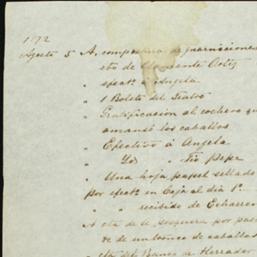 1872
Agosto 5 A compostura de guarniciones
cta de Clemente Ortiz
" efect. á Angela
" 1 Boleto del Teatro
" Gratificacion al cochero que
amansó los caballos
" Efectivo á Angela
" Yd " Tio Pepe
" Una hoja papel sellado
por efect. en Caja al dia 1º
" " recibido de Echarren
A cta de
ta de un tronco de caballos
cta del Banco de Herrador